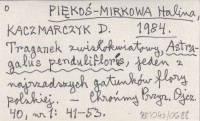 PIĘKOŚ-MIRKOWA Halina,
KACZMARCZYK D. 1984.
Traganek zwisłokwiatowy, Astra-
galus penduliflorus, jeden z
najrzadszych gatunków flory
polskiej. - Chrońmy Przyr. Ojcz.
40, nr 1: 41-53.